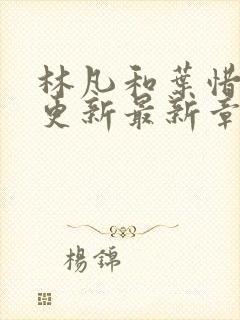 林凡和葉惜
更新最新章
楊錦